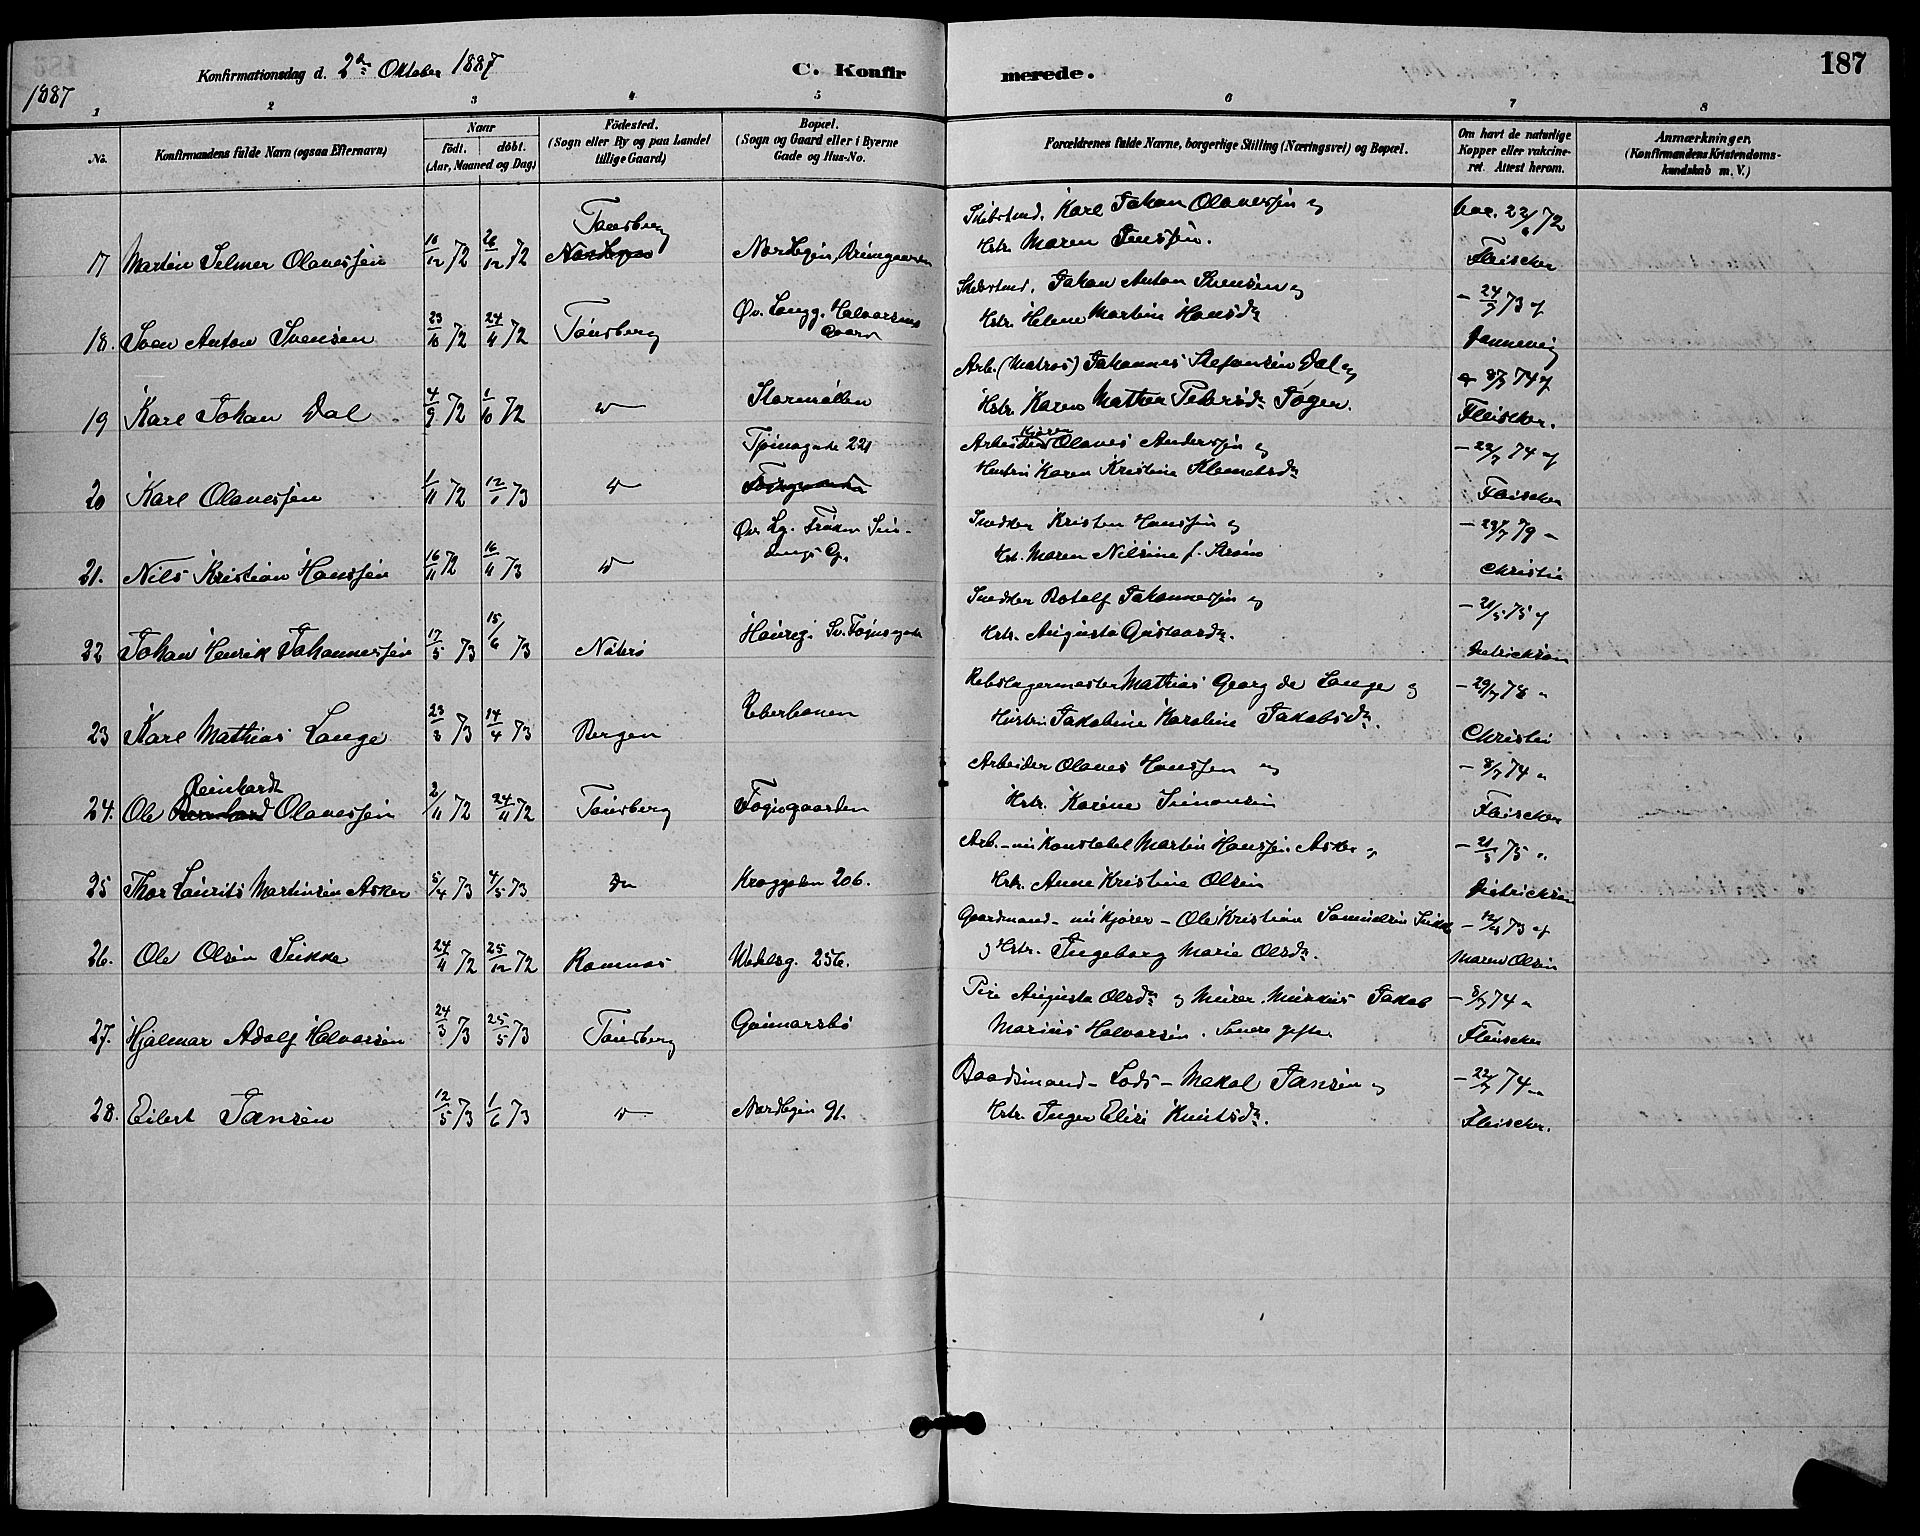 Konfirmationsdag d. 2den Oktober 1887
C. Konfirmerede.
187
1887
1 2 3 4 5 6 7 8
No.
Konfirmandens fulde Navn (ogsaa Efternavn)
Naar
födt. döbt.
(Aar, Maaned og Dag)
Födested.
(Sogn eller By og paa Landet
tillige Gaard)
Bopæl.
(Sogn og Gaard eller i Byerne
Gade og Hus-No.
Forældrenes fulde Navne, borgerlige Stilling (Næringsvei) og Bopæl.
Om havt de naturlige
Kopper eller vakcine-
ret. Attest herom.
Anmærkninger,
(Konfirmandens Kristendoms-
kundskab m. V.)
Tønsberg
Skibstmd. Karl Johan Olavessen og
vac. 22/6 72
17 Martin Selmer Olavessen 10/12 72 26/12 72 Nordbyen
Hstr. Maren Jenssen.
Fleischer
Øv. Langg. Halvorsens
Gaard
Skibstmd. Johan Anton Svensen og
- 24/9 73 af
18. Sven Anton Svensen 23/10 72 24/11 72 Tønsberg
Hstr. Helene Martine Hansdr
Jannevig
Arb. (Matros) Johannes Stefansen Dal og
8/7 74 af
19 Karl Johan Dal 4/9 72 1/10 72 " Stormøllen
Hstr. Karen Mathea Petersdr
Fleischer.
Tjømegade 221
Kjører
Arbeider Olaves Anderssen og
- 22/7 74 af
20 Karl Olavessen 1/11 72 12/1 73 "
Hustru Karen Kristine Klemetsdr
Fleischer
Øv. Lg. Frøken
Snedker Kristen Hanssen og
- 23/7 79 "
21. Nils Kristian Hanssen 16/11 72 16/4 73 "
Hst. Maren Nilsine f. Strøm
Christie
Snedker Botolf Johannessen og
- 21/5 75 af
22 Johan Henrik Johannessen 17/5 73 15/6 73 Nøterø
Hstr. Augusta Gustavsdr.
Dietrichson
Rebslagermester Mathias Georg de Lange og
- 29/7 78 "
23 Karl Mathias Lange 23/3 73 14/4 73 Bergen Reberbanen
Hustru Jakobine Karoline Jakobsdr.
Christie
Reinhardt
Arbeider Olaves Hanssen og
- 8/7 74 "
24. Ole Bernhard Olavessen 2/11 72 24/11 72 Tønsberg Foynsgaarden
Hstr. Karine Simonsen
Fleischer
Arb. - nu Konstabel Martin Hanssen Asker og
- 21/5 75 "
25 Thor Laurits Martinsen Asker 5/4 73 4/5 73 Do Kroggden 206.
Hstr. Anne Kristine Olsen
Dietrichson
Gaardmand - nu Kjører - Ole Kristian Samuelsen Sukke
- 12/4 73 af
26. Ole Olsen Sukke 24/11 72 25/12 72 Ramnæs Wedelsg. 256.
og Hstr. Ingeborg Marie Olsdr.
Maren Olsen
Pige Augusta Olsdr og Murer Markus Jakob
- 8/7 74 "
27. Hjalmar Adolf Halvorsen 24/3 73 25/5 73 Tønsberg Gunnarsbø
Marius Halvorsen. Senere gifte
Fleischer
Baadsmand - Lods - Makal Jansen og
- 22/7 74 "
28. Eilert Jansen 12/5 73 1/6 73 " Nordbyen 91.
Hstr. Inger Elise Knutsdr.
Fleischer.